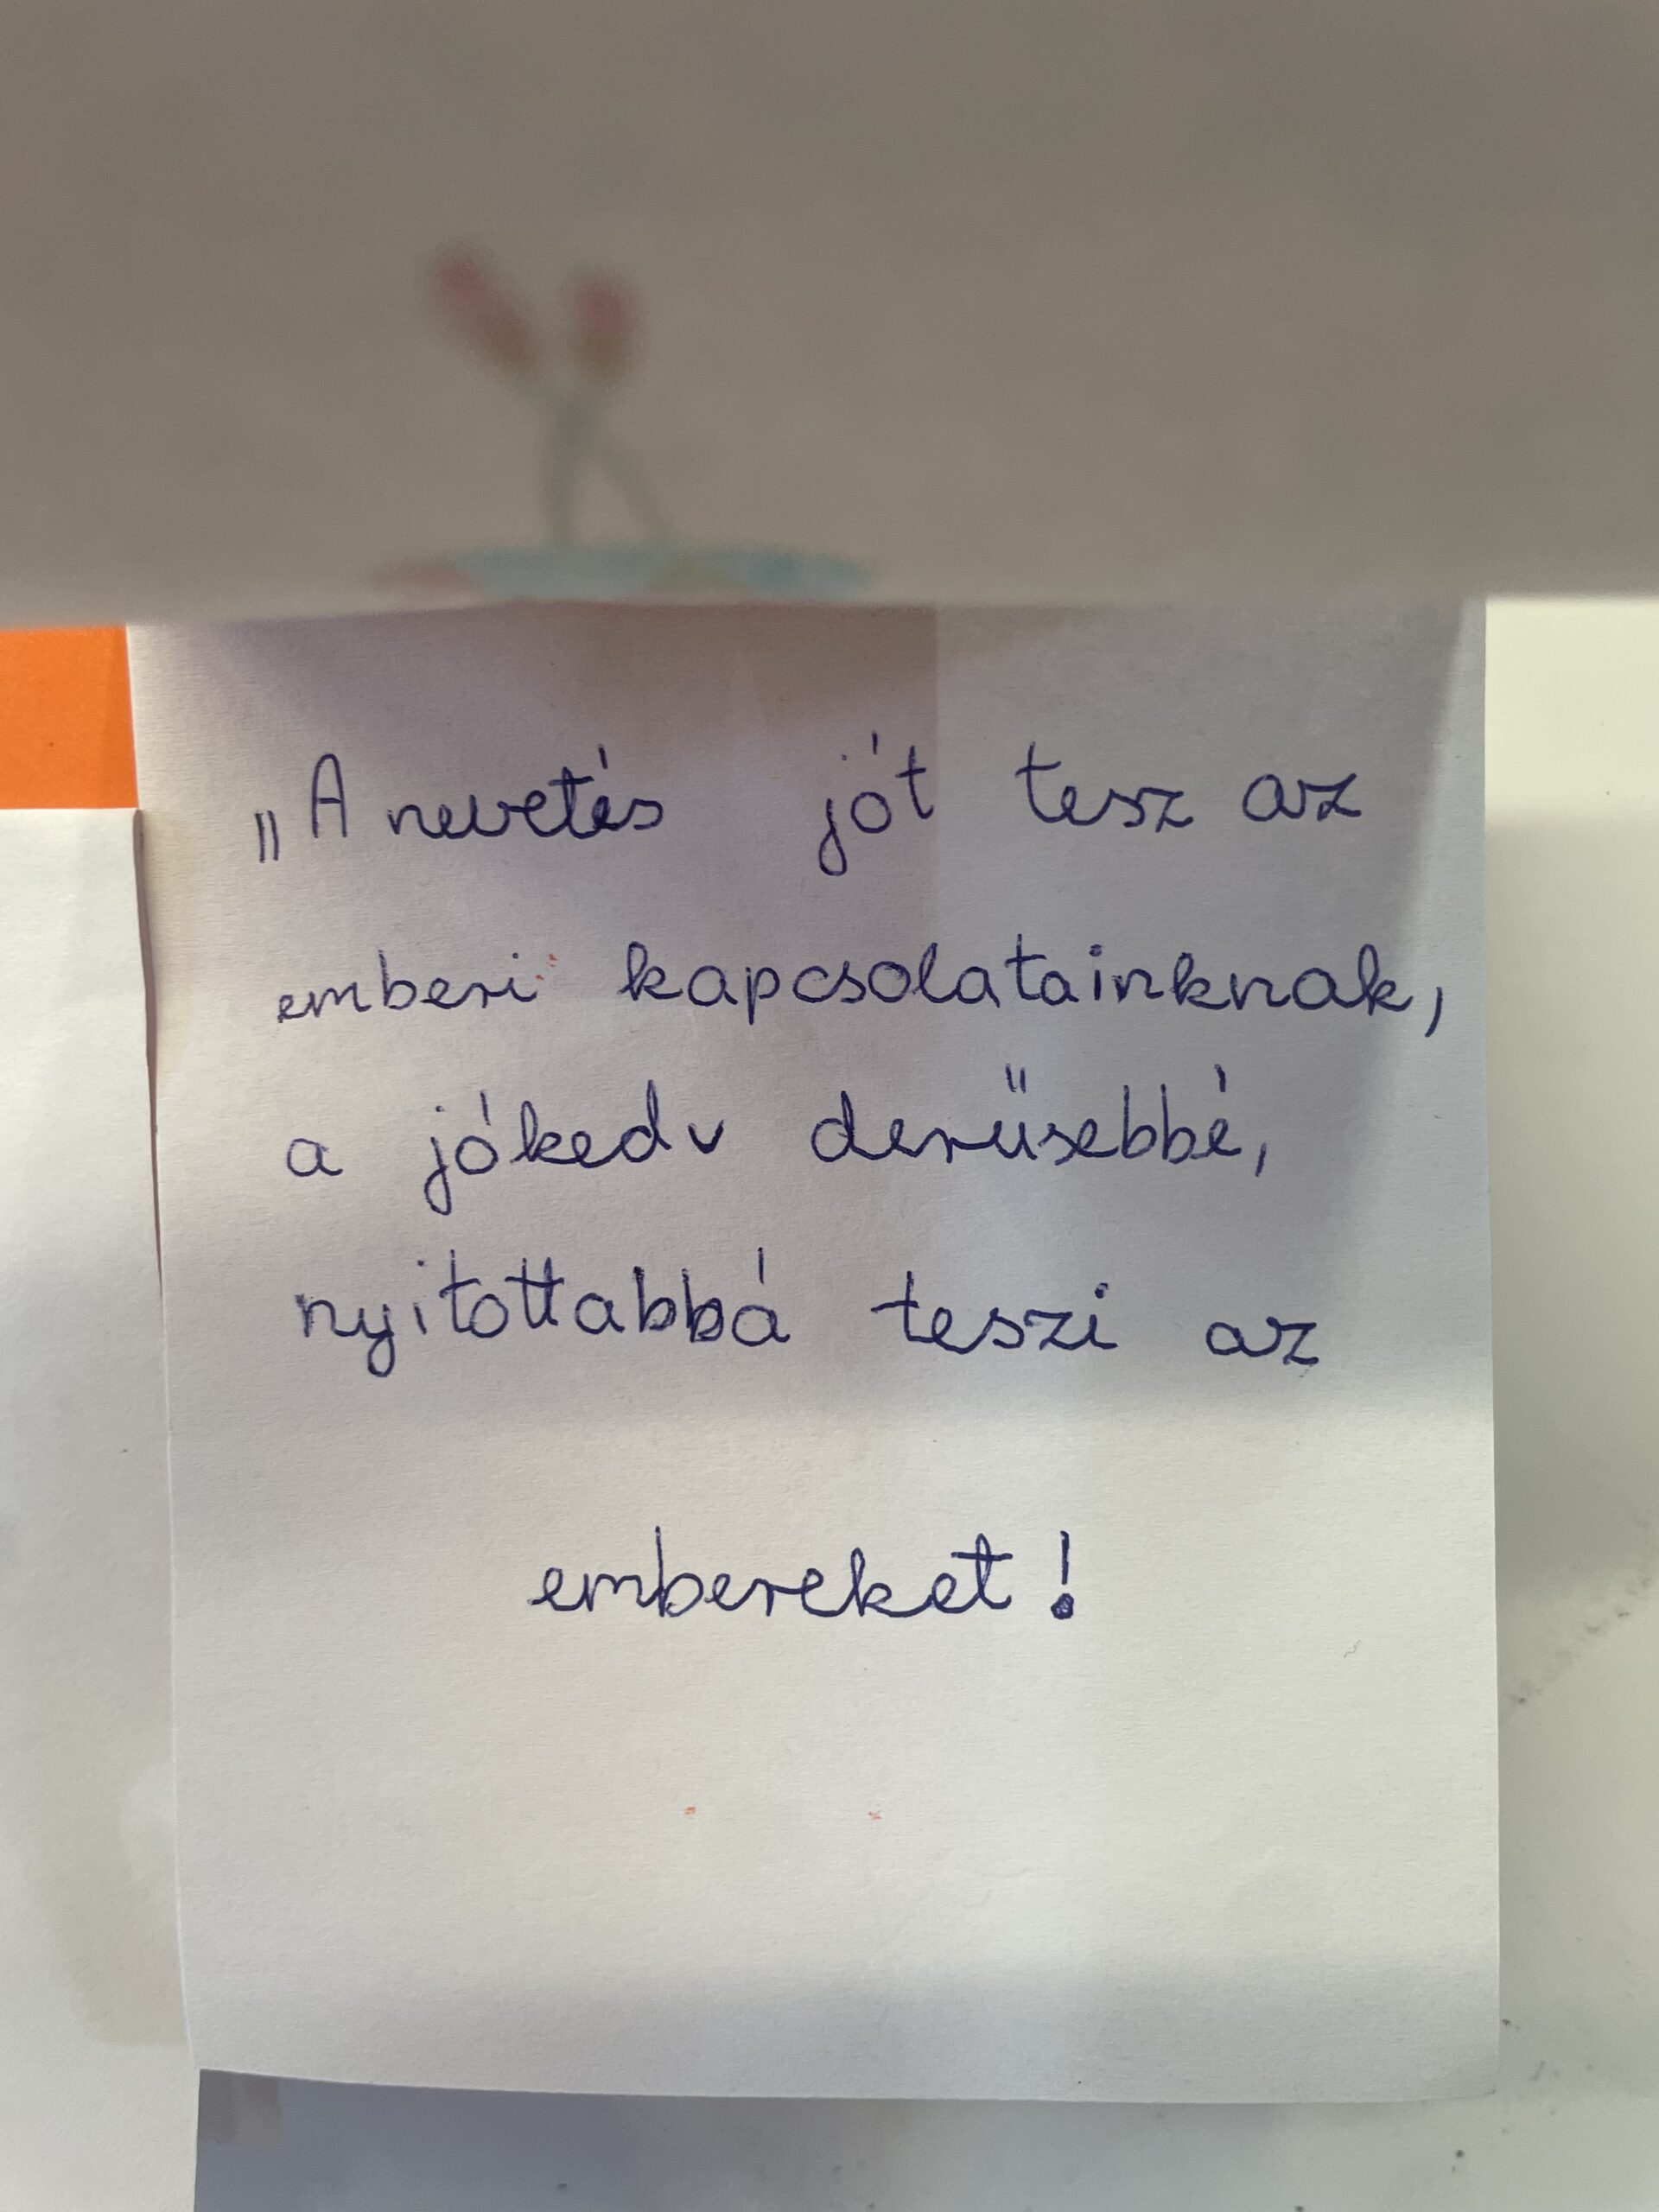 „A nevetés jót tesz az
emberi kapcsolatainknak,
a jókedv derűsebbé,
nyitottabbá teszi az
embereket!